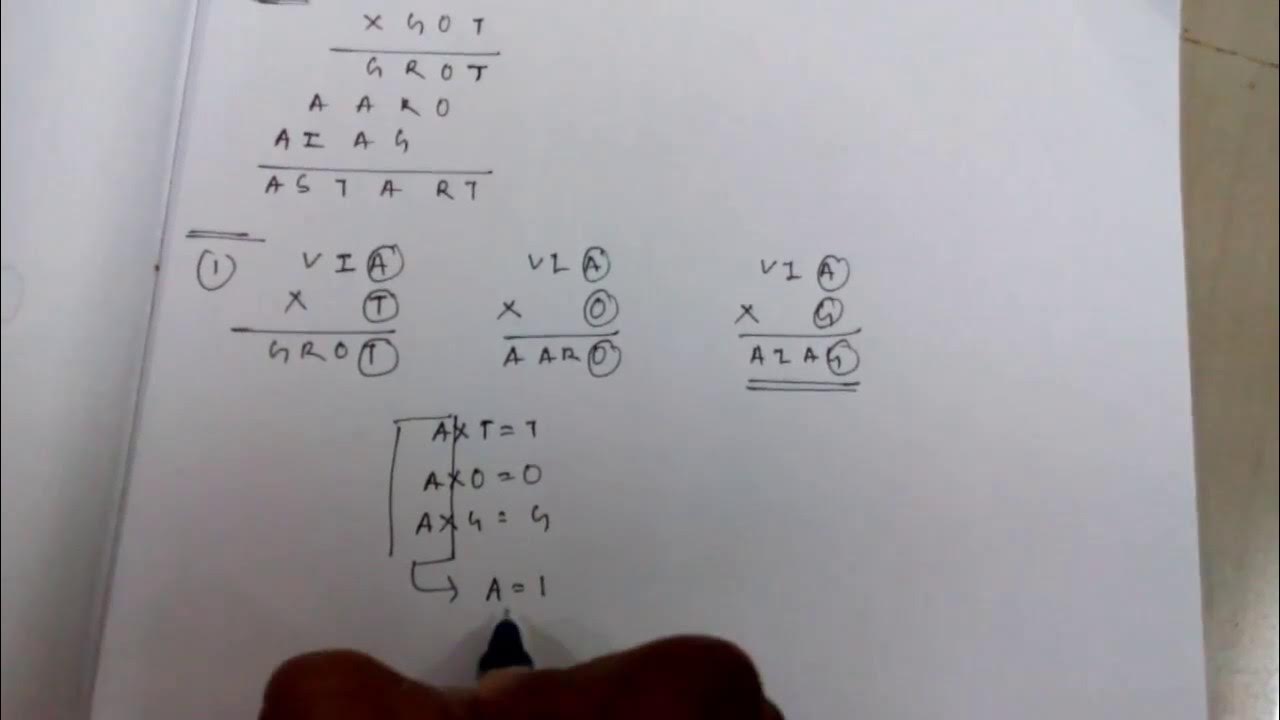 X G O T
G R O T
A A R O
A I A G
A S T A R T
1 V I A V I A V I A
X T X O X G
G R O T A A R O A I A G
A X T = T
A X O = O
A X G = G
A = 1